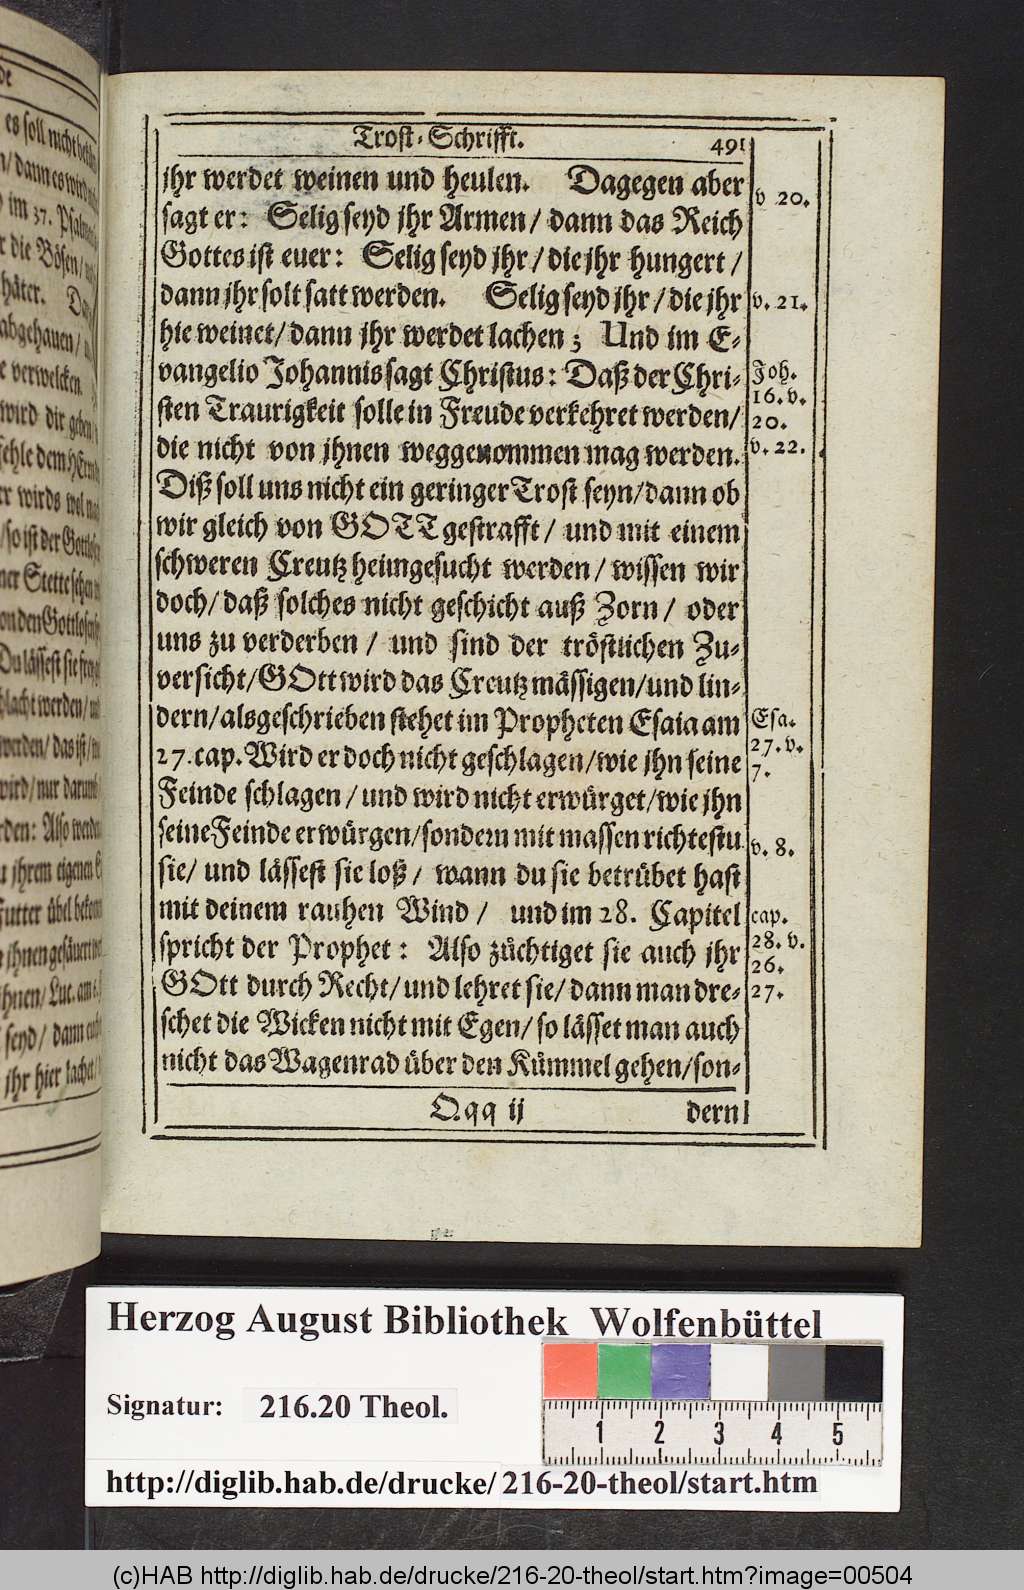 Trost-Schrifft. 491
jhr werdet weinen und heulen. Dagegen aber
sagt er: Selig seyd jhr Armen/ dann das Reich
Gottes ist euer: Selig seyd jhr/ die jhr hungert/
dann jhr solt satt werden. Selig seyd jhr/ die jhr
hie weinet/ dann jhr werdet lachen; Und im E-
vangelio Johannis sagt Christus: Daß der Chri-
sten Traurigkeit solle in Freude verkehret werden/
die nicht von jhnen weggenommen mag werden.
Diß soll uns nicht ein geringer Trost seyn/ dann ob
wir gleich von GOTT gestrafft/ und mit einem
schweren Creutz heimgesucht werden/ wissen wir
doch/ daß solches nicht geschicht auß Zorn/ oder
uns zu verderben/ und sind der tröstlichen Zu-
versicht/ GOtt wird das Creutz mässigen/ und lin-
dern/ als geschrieben stehet im Propheten Esaia am
27. cap. Wird er doch nicht geschlagen/ wie jhn seine
Feinde schlagen/ und wird nicht erwürget/ wie jhn
seine Feinde erwürgen/ sondern mit massen richtestu
sie/ und lässest sie loß/ wann du sie betrübet hast
mit deinem rauhen Wind/ und im 28. Capitel
spricht der Prophet: Also züchtiget sie auch jhr
GOtt durch Recht/ und lehret sie/ dann man dre-
schet die Wicken nicht mit Egen/ so lässet man auch
nicht das Wagenrad über den Kümmel gehen/ son-
Qqq ij dern
v 20.
v. 21.
Joh.
16. v.
20.
v. 22.
Esa.
27. v.
7.
v. 8.
cap.
28. v.
26.
27.
es soll nicht
dann es wird
im 37. Psalm
die Bösen/
abgehauen/
verwelcken.
wird dir geben
wirds
so ist der
Stette sehen
Du lässest sie
werden/
werden/ das ist/
wird/ nur darumb
Also
jhrem eigenen
Futter übel
jhnen gesäuert
Luc. am 6.
seyd/ dann
jhr hier lachet/
Herzog August Bibliothek Wolfenbüttel
Signatur: 216.20 Theol.
1 2 3 4 5
http://diglib.hab.de/drucke/216-20-theol/start.htm
(c)HAB http://diglib.hab.de/drucke/216-20-theol/start.htm?image=00504